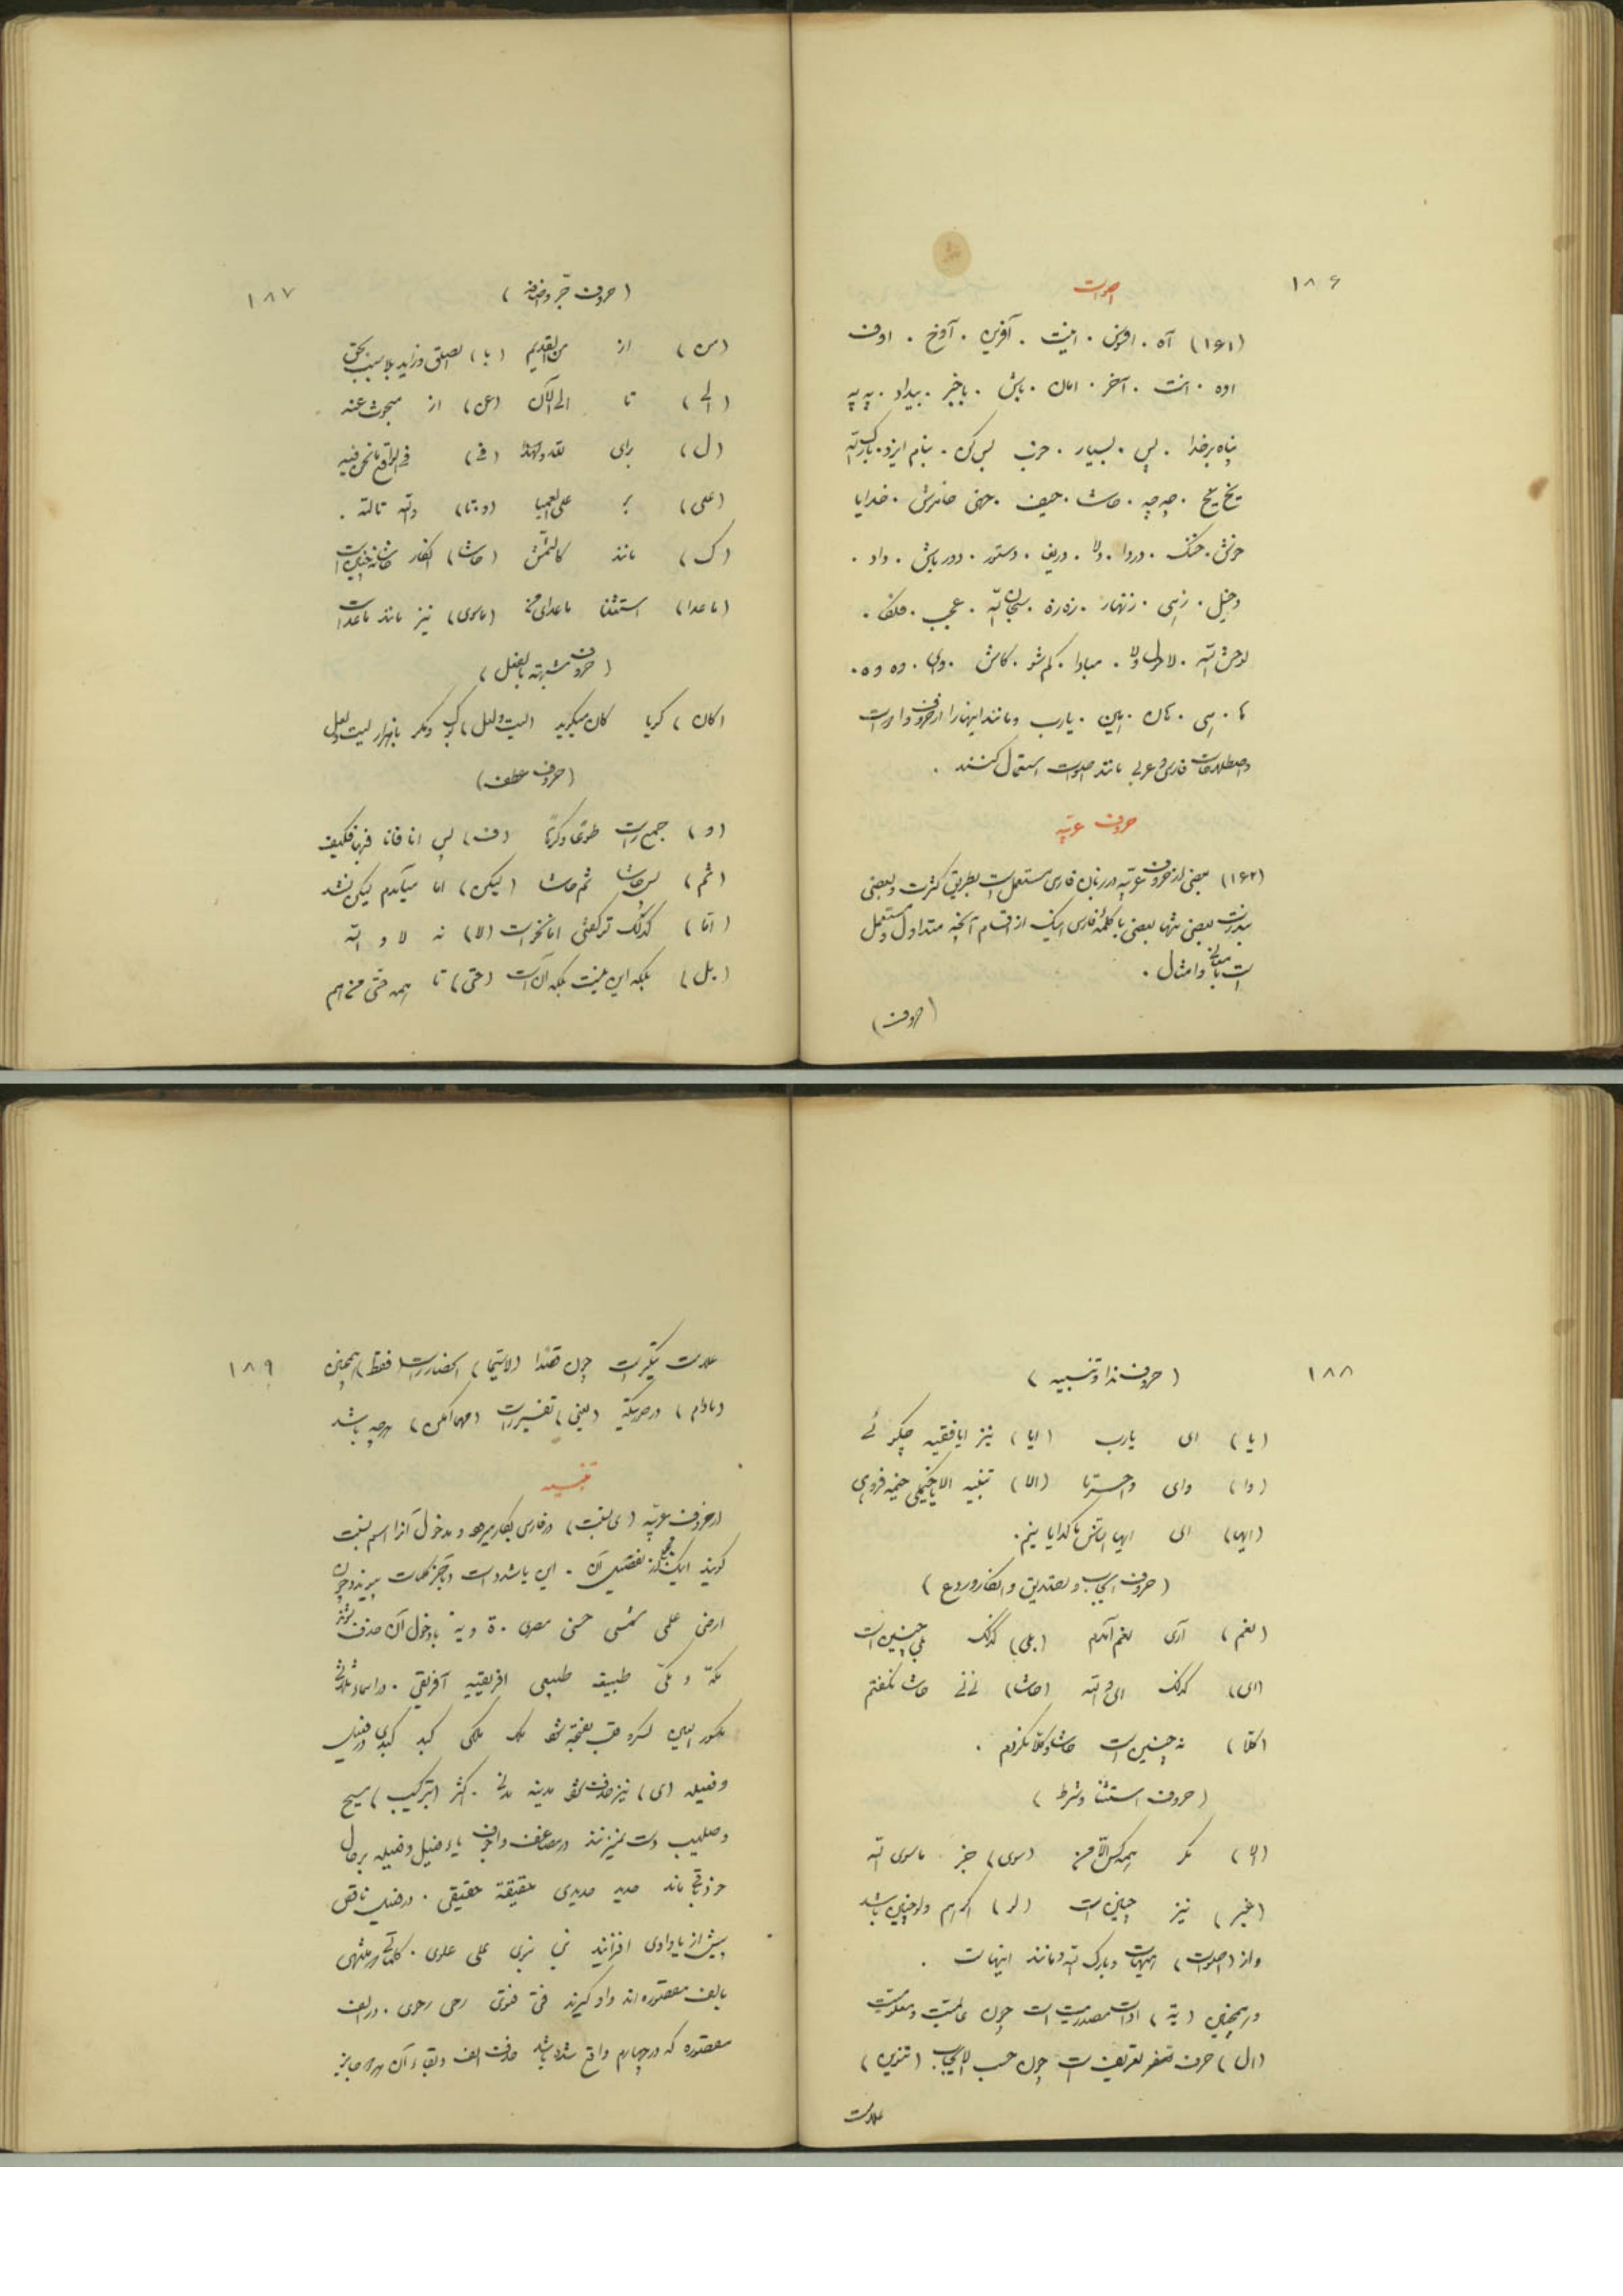 ۱۸۶
اصوات
(۱۶۱) آه . افسوس . اینت . آفرین . آوخ . اوف
اوه . انت . آخر . امان . باش . باخبر . بیداد . په په
پناه بر خدا . پس . بسیار . خوب . بس کن . بنام ایزد . بارک الله
بخ بخ . چه چه . حاشا . حیف . خهی . خامش . خدایا
خوش . خنک . دردا . دلا . دریغ . دستور . دور باش . داد .
دخیل . زهی . زنهار . زه زه . سبحان الله . عجب .
لوحش الله . لا حول ولا . مبادا . کم شو . کاش . وای . وه وه .
ها . هی . هان . هین . یارب . و مانند اینها را از حروف و ادوات
و اصطلاحات فارسی و عربی مانند اصوات استعمال کنند .
حروف عربیه
(۱۶۲) بعضی از حروف عربیه در زبان فارسی مستعمل است بطریق کثرت و بعضی
بندرت بعضی تنها بعضی با کلمهٔ فارسی اینک از اقسام آنچه متداول و مستعمل
است با معانی و امثال .
(حروف)
۱۸۷
(حروف جر و اضافه)
(من) از من القدیم (با) بحق
(الی) تا الی الآن (عن) از مبحوث عنه
(ل) برای لهذا (فی) فی الواقع مانحن فیه
(علی) بر علی العمیا (و . تا) والله تالله .
(ک) مانند کالشمس (حاشا) انکار
(ماعدا) استثنا ماعدای من (ماسوی) نیز مانند ماعداست
(حروف مشبهة بالفعل)
(کان) گویا کان میگوید (لیت و لعل) و مگر با هزار لیت و لعل
(حروف عطف)
(و) جمع راست طوعا و کرها (ف) پس انا فانا فبها فکیف
(ثم) پس حاشا ثم حاشا (لیکن) اما میآیدم لیکن نشد
(اما) کذلک تو گفتی اما نخواست (لا) نه لا و الله
(بل) بلکه این نیست بلکه آنست (حتی) تا همه حتی من هم
۱۸۸
(حروف ندا و تنبیه)
(یا) ای یارب (ایا) نیز ایا فقیه
(وا) وای واحسرتا (الا) تنبیه الا یا خیمگی خیمه فروهل
(ایها) ای ایها الناس ما گدایانیم .
(حروف ایجاب و تصدیق و انکار و ردع)
(نعم) آری نعم آمدم (بلی) کذلک بلی چنین است
(ای) کذلک ای والله (حاشا) نی نی حاشا نگفتم
(کلا) نه چنین است حاشا و کلا نکردم .
(حروف استثنا و شرط)
(الا) مگر همه کس الا من (سوی) جز ماسوی الله
(غیر) نیز چنان است (لو) اگر هم ولو چنین باشد
و از (اصوات) هیهات و بارک الله و مانند اینهاست .
و همچنین (یة) ادات مصدریت است چون عالمیت و معلومیت
(ال) حرف تعریف است چون حسب الایجاب (تنوین)
علامت
۱۸۹
علامت تنکیر است چون قصدا (لاسیما) اختصار راست (فقط) همچنین
(مادام) در صورتیکه (یعنی) تفسیر راست (مهما امکن) هرچه باشد
تنبیه
از حروف عربیه (ی نسبت) در فارسی بکار میرود و مدخول آنرا اسم نسبت
گویند اینک مجملی از تفصیل آن . این یا مشدد است و بآخر کلمات پیوندد چون
ارضی علمی شمسی حسنی مصری . ة و یة بدخول آن حذف شوند
مکه و مکی طبیعة طبیعی افریقیه آفریقی . در اسماء ثلاثی
مکسور العین کسره قلب بفتحه شود ملک ملکی کبد کبدی در فعیل
و فعیله (ی) نیز حذف شود مدینه مدنی . اکثر (بترکیب) مسیح
و صلیب دست نمیزنند در مضاعف و اجوف یاء فعیل و فعیله بر حال
خود باقی ماند حدید حدیدی حقیقة حقیقی . در فعیل ناقص
پیش از یا واوی افزایند نبی نبوی علی علوی . کلماتی که منتهی
بالف مقصوره اند واو گیرند فتی فتوی رحی رحوی . در الف
مقصوره که در چهارم واقع شده باشد حذف الف و بقاء آن هر دو جایز